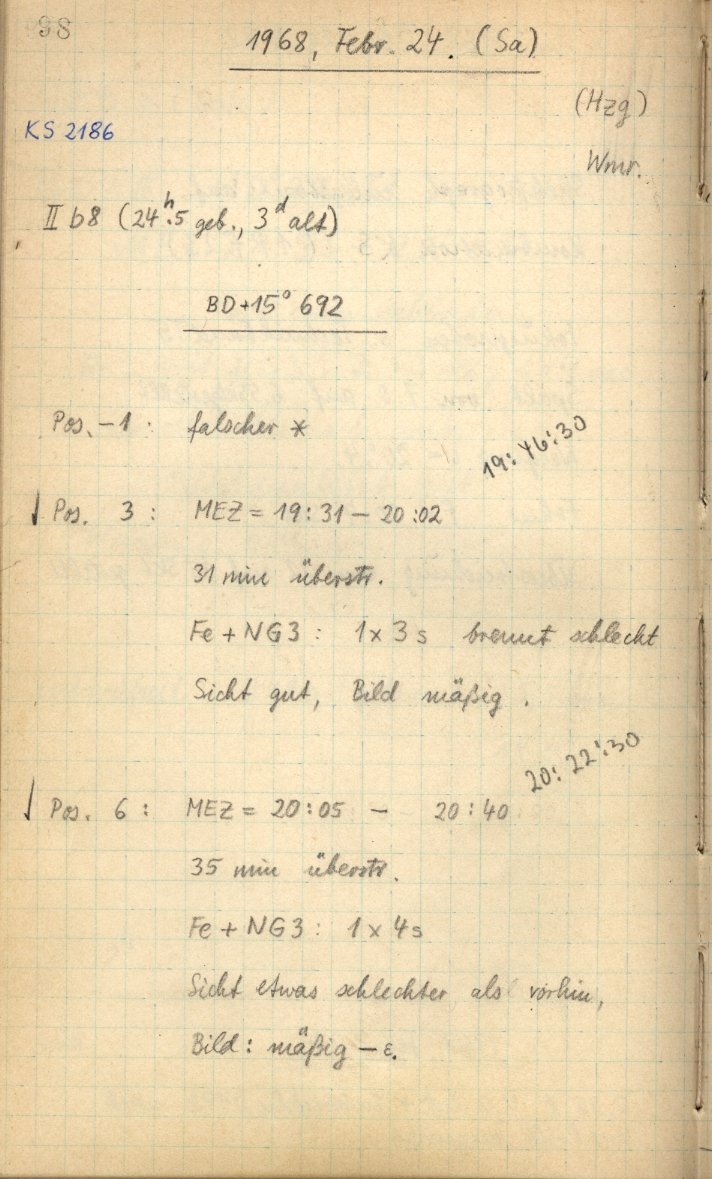 98
1968, Febr. 24. (Sa)
(Hzg)
KS 2186
Wmr.
II b8 (24ʰ.5 geb., 3ᵈ alt)
BD+15° 692
Pos. -1 : falscher *
19:46:30
Pos. 3 : MEZ = 19:31 – 20:02
31 min überstr.
Fe + NG3 : 1 x 3 s brennt schlecht
Sicht gut, Bild mäßig .
20:22:30
Pos. 6 : MEZ = 20:05 – 20:40
35 min überstr.
Fe + NG3 : 1 x 4s
Sicht etwas schlechter als vorhin,
Bild : mäßig – ε.